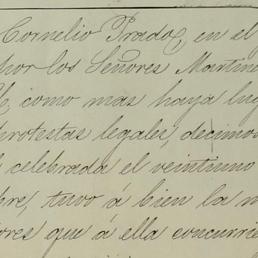 Cornelio Prado, en el
por los Señores Martin
como mas haya lug
protestas legales, decimos
celebrada el veintiuno
bre, tuvo á bien la m
ores que á ella concurrie